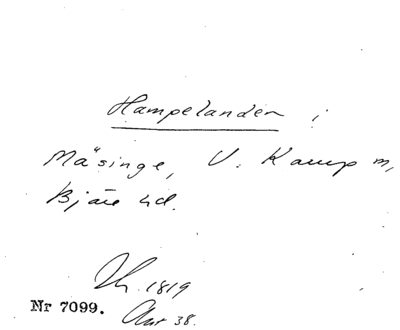 Hampelanden i
Mäsinge, V. Karup m,
Bjäre hd.
1819
Nr 7099. Akt 38.